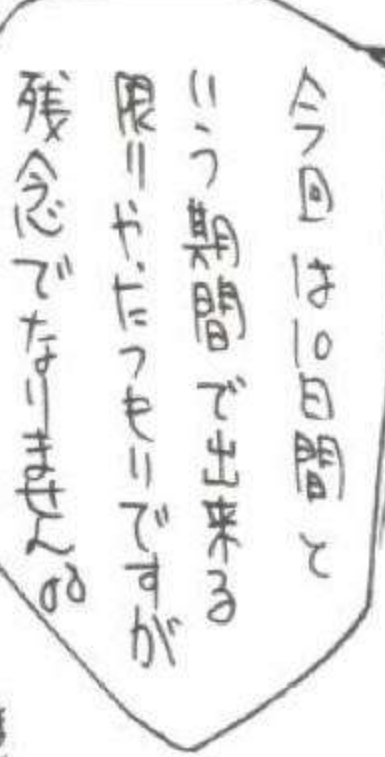 今回は10日間と
いう期間で出来る
限りやったつもりですが
残念でなりません。